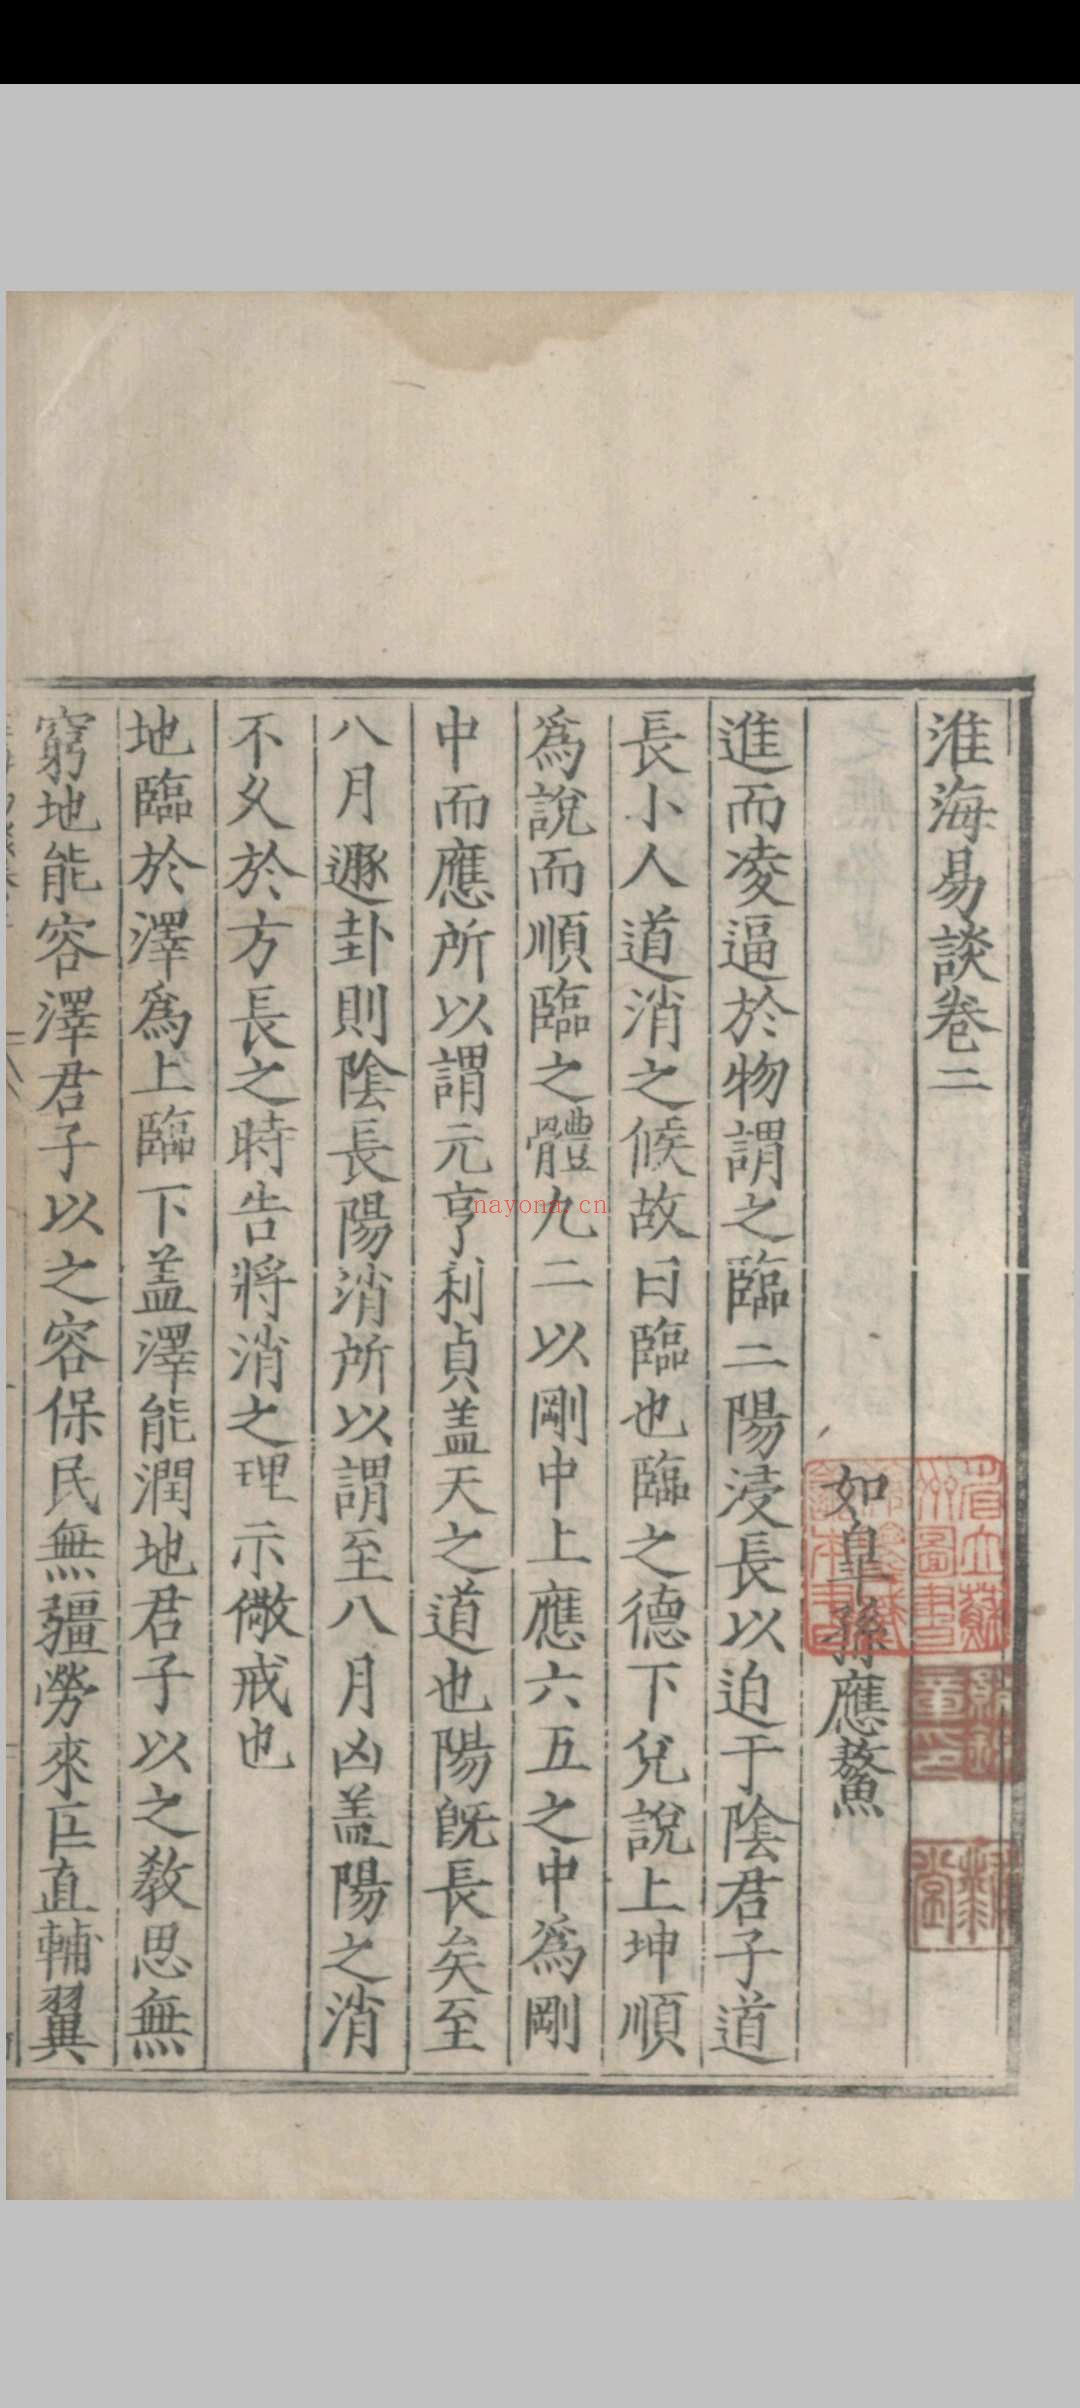 淮海易談卷二
如臯孫應鰲
進而凌逼於物謂之臨二陽浸長以迫于陰君子道
長小人道消之候故曰臨也臨之德下兌說上坤順
爲說而順臨之體九二以剛中上應六五之中爲剛
中而應所以謂元亨利貞盖天之道也陽旣長矣至
八月遯卦則陰長陽消所以謂至八月凶盖陽之消
不乆於方長之時告將消之理示儆戒也
地臨於澤爲上臨下盖澤能潤地君子以之教思無
窮地能容澤君子以之容保民無疆勞來匡直輔翼
nayona.cn